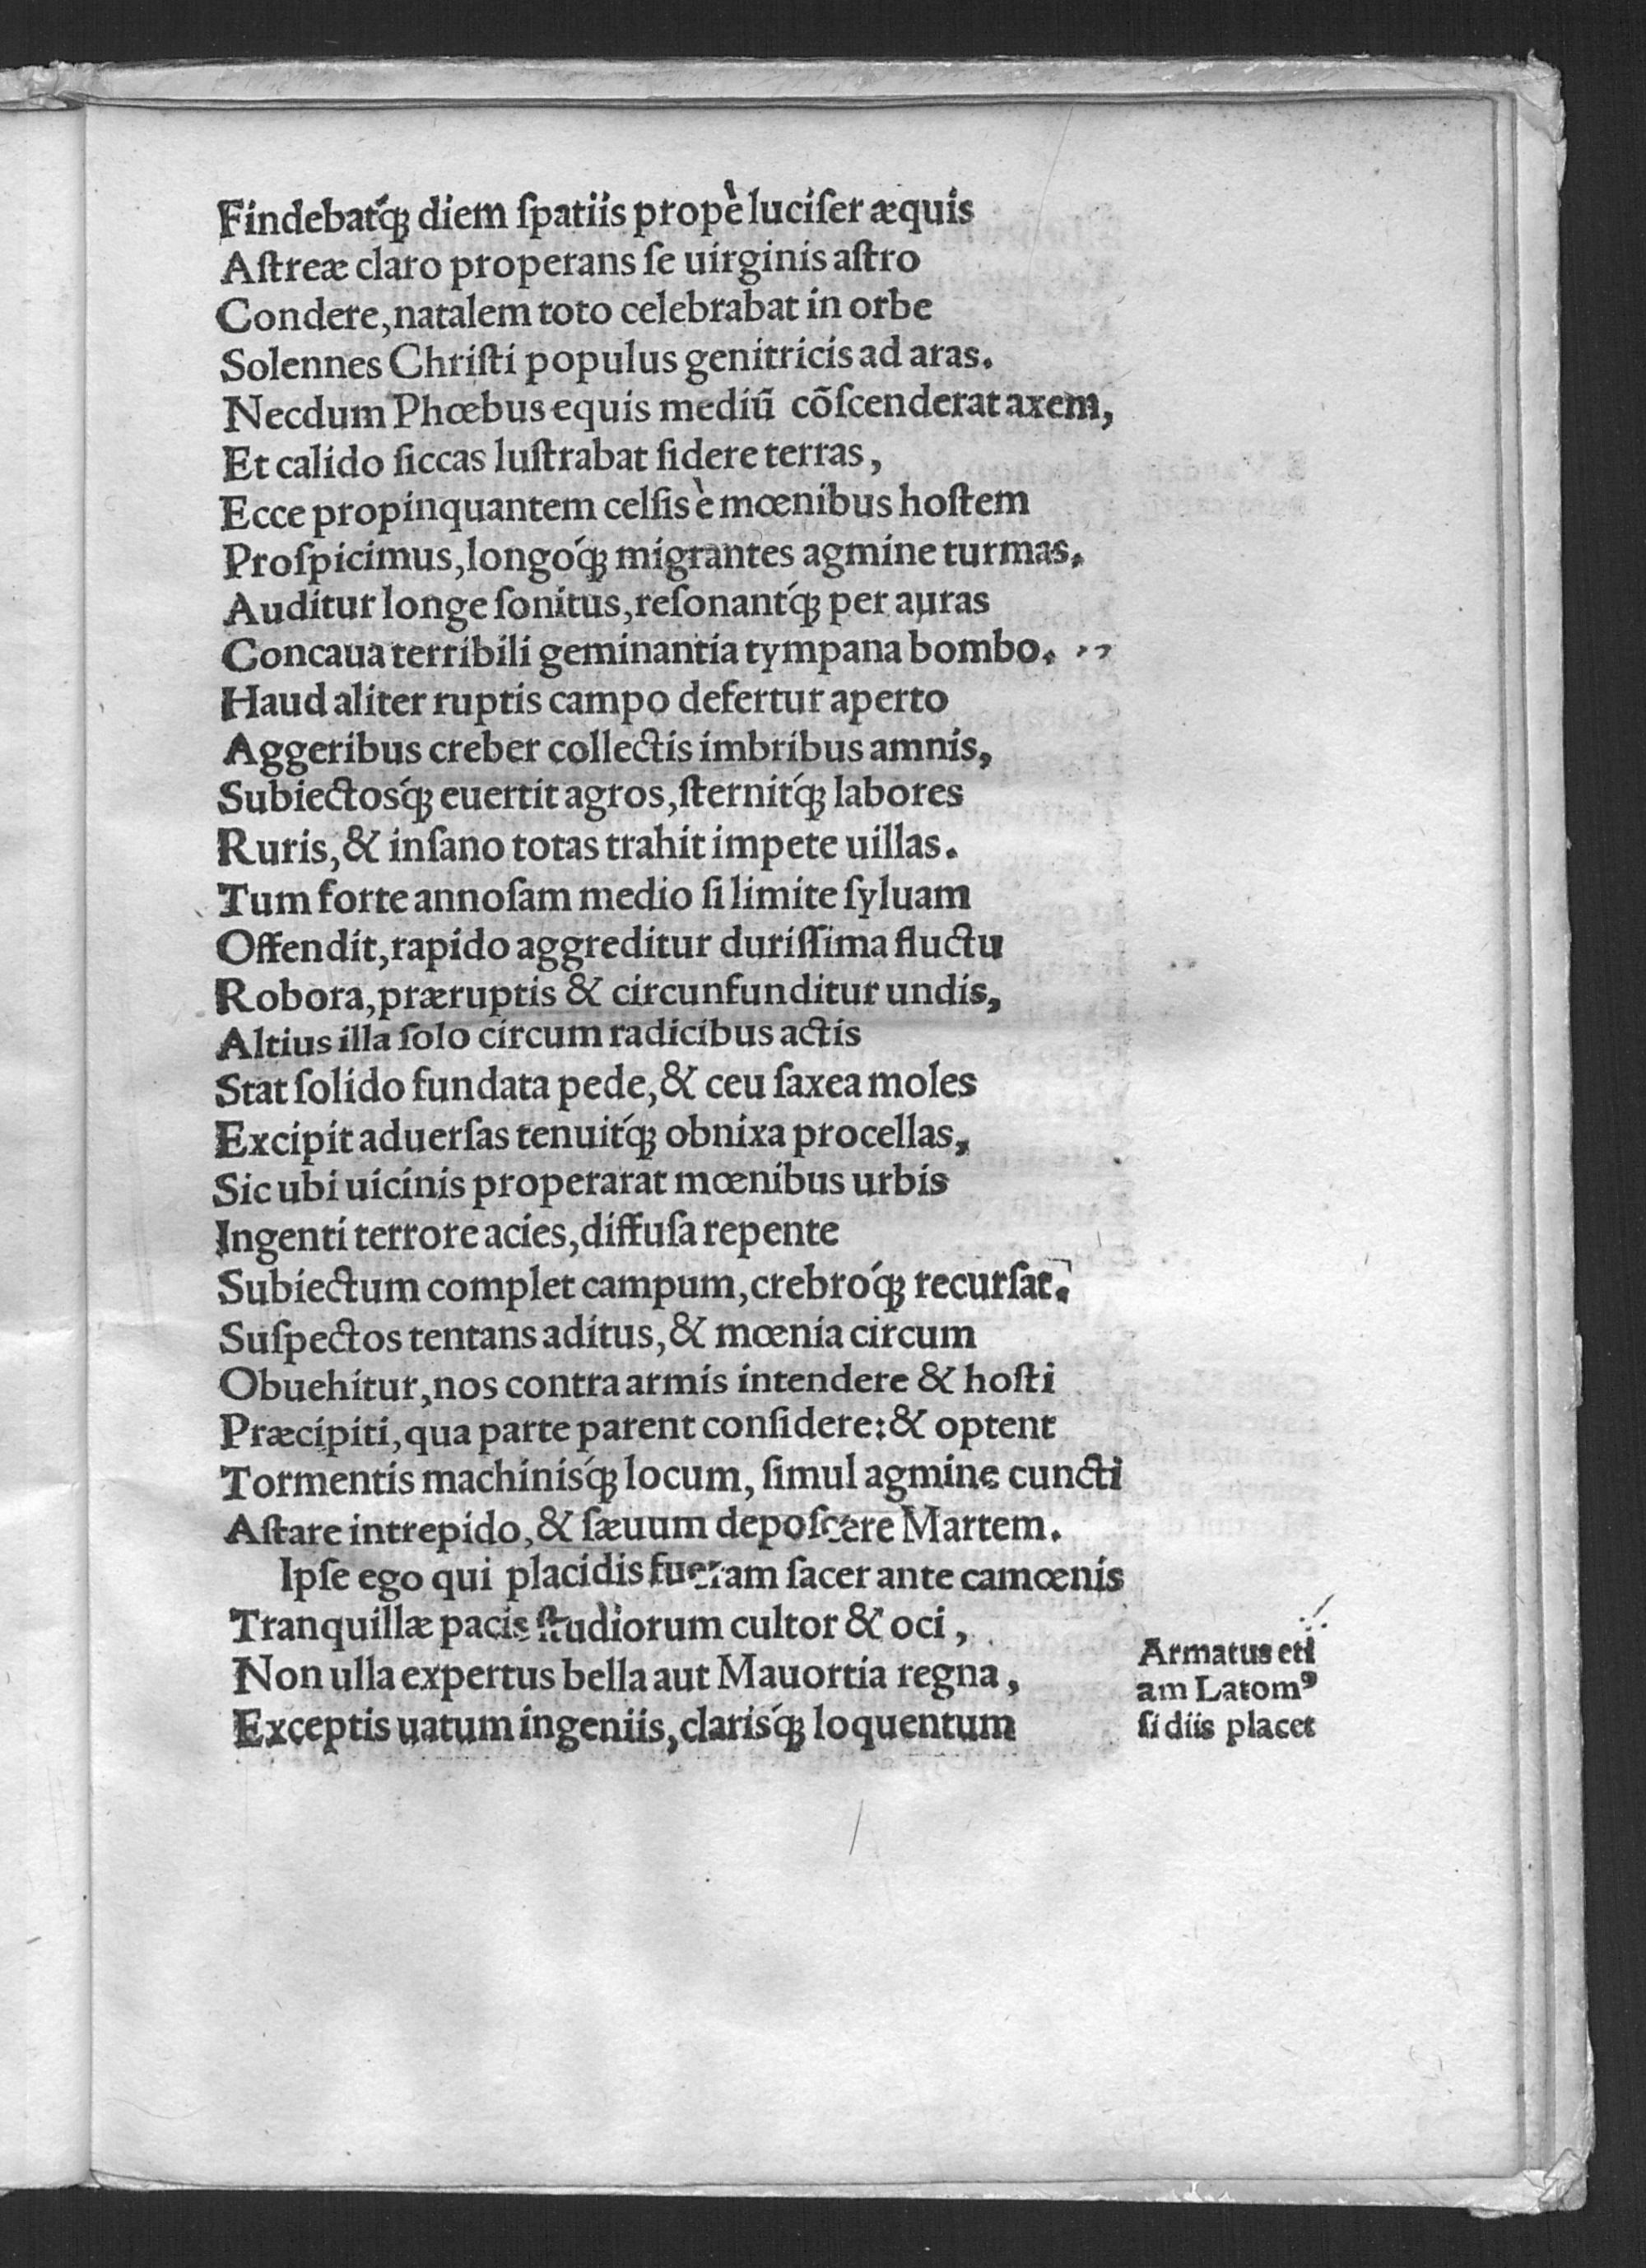 Findebatq́ꝫ diem ſpatiis propè luciſer æquis
Aſtreæ claro properans ſe uirginis aſtro
Condere, natalem toto celebrabat in orbe
Solennes Chriſti populus genitricis ad aras.
Necdum Phœbus equis mediū cōſcenderat axem,
Et calido ſiccas luſtrabat ſidere terras,
Ecce propinquantem celſis è mœnibus hoſtem
Proſpicimus, longoq́ꝫ migrantes agmine turmas.
Auditur longe ſonitus, reſonantq́ꝫ per auras
Concaua terribili geminantia tympana bombo.
Haud aliter ruptis campo defertur aperto
Aggeribus creber collectis imbribus amnis,
Subiectosq́ꝫ euertit agros, ſternitq́ꝫ labores
Ruris, & inſano totas trahit impete uillas.
Tum forte annoſam medio ſi limite ſyluam
Offendit, rapido aggreditur duriſſima fluctu
Robora, præruptis & circunfunditur undis,
Altius illa ſolo circum radicibus actis
Stat ſolido fundata pede, & ceu ſaxea moles
Excipit aduerſas tenuitq́ꝫ obnixa procellas,
Sic ubi uicinis properarat mœnibus urbis
Ingenti terrore acies, diffuſa repente
Subiectum complet campum, crebroq́ꝫ recurſat.
Suſpectos tentans aditus, & mœnia circum
Obuehitur, nos contra armis intendere & hoſti
Præcipiti, qua parte parent conſidere: & optent
Tormentis machinisq́ꝫ locum, ſimul agmine cuncti
Aſtare intrepido, & ſæuum depoſcere Martem.
Ipſe ego qui placidis fueram ſacer ante camœnis
Tranquillæ pacis ſtudiorum cultor & oci,
Non ulla expertus bella aut Mauortia regna,
Exceptis uatum ingeniis, clarisq́ꝫ loquentum
Armatus eti
am Latomꝰ
ſi diis placet